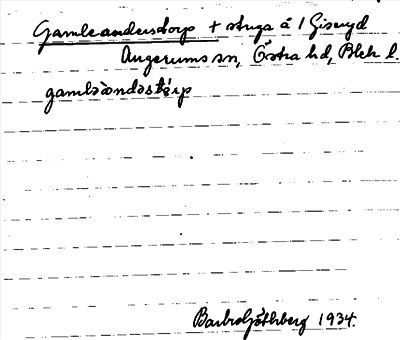 Gamleanderstorp + stuga å 1 Giseryd
Augerums sn, Östra hd, Blek l.
gamləàndəstɵ́rp
Barbro Göthberg 1934.